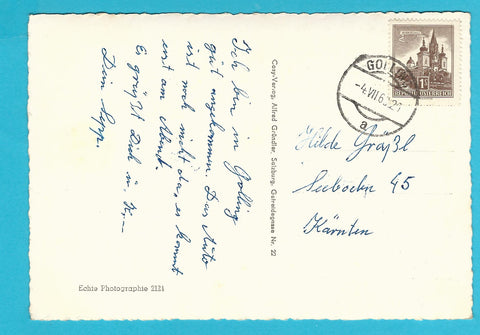 Ich bin in Golling
gut angekommen. Das Auto
ist noch nicht da, es kommt
erst am Abend.
Es grüßt Dich u. K.
Dein Sepp.
Cosy-Verlag, Alfred Gründler, Salzburg, Getreidegasse Nr. 22
Echte Photographie 2121
GOLLING
-4.VII.6
a
1S
REPUBLIK ÖSTERREICH
Hilde Graßl
Seeboden 45
Kärnten